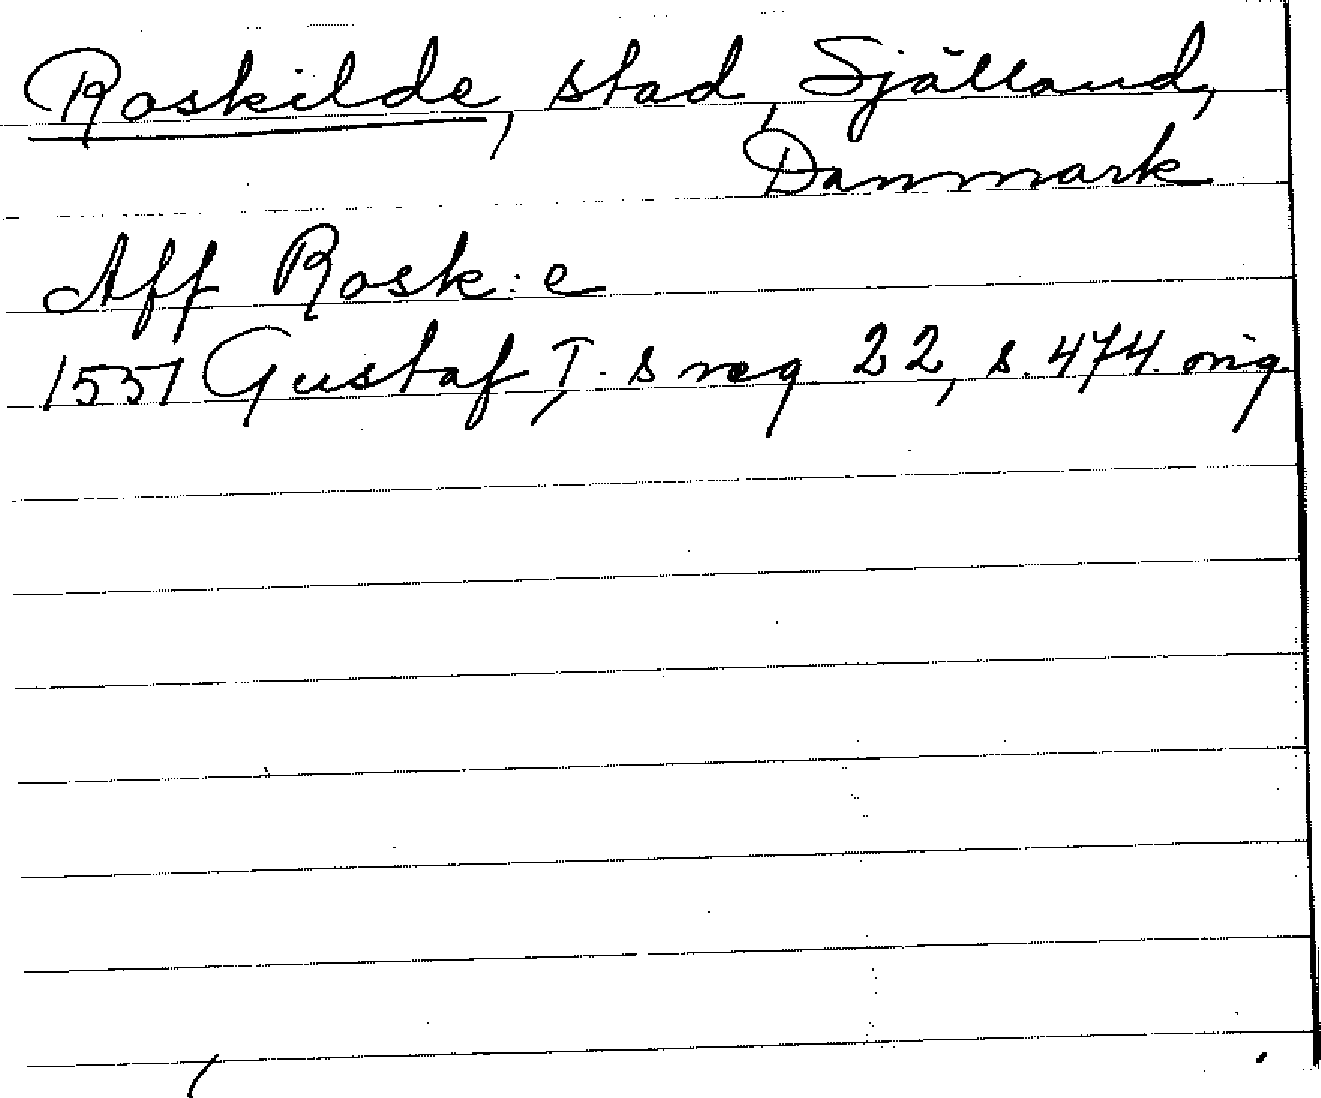 Roskilde, stad, Själland,
Danmark
Aff Rosk: e
1551 Gustaf I. s reg 22, s. 474. orig.